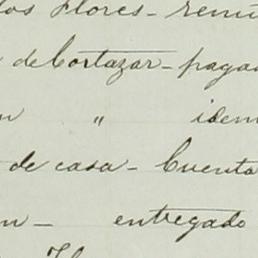 los Flores - remi
de Cortazar - paga
n " idem
de casa - Cuenta
n - entregado